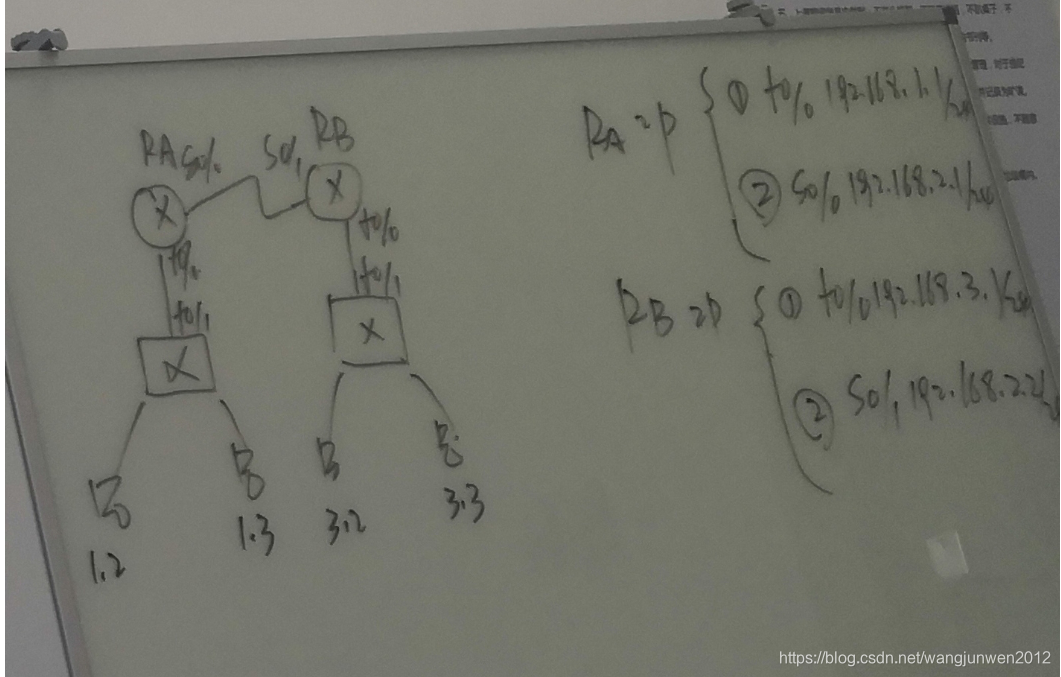 RA S0/0 S0/1 RB
f0/0
f0/0
f0/1
f0/1
1.2
1.3
3.2
3.3
RA => { ① f0/0 192.168.1.1/24
② S0/0 192.168.2.1/24
RB => { ① f0/0 192.168.3.1/24
② S0/1 192.168.2.2/24
https://blog.csdn.net/wangjunwen2012